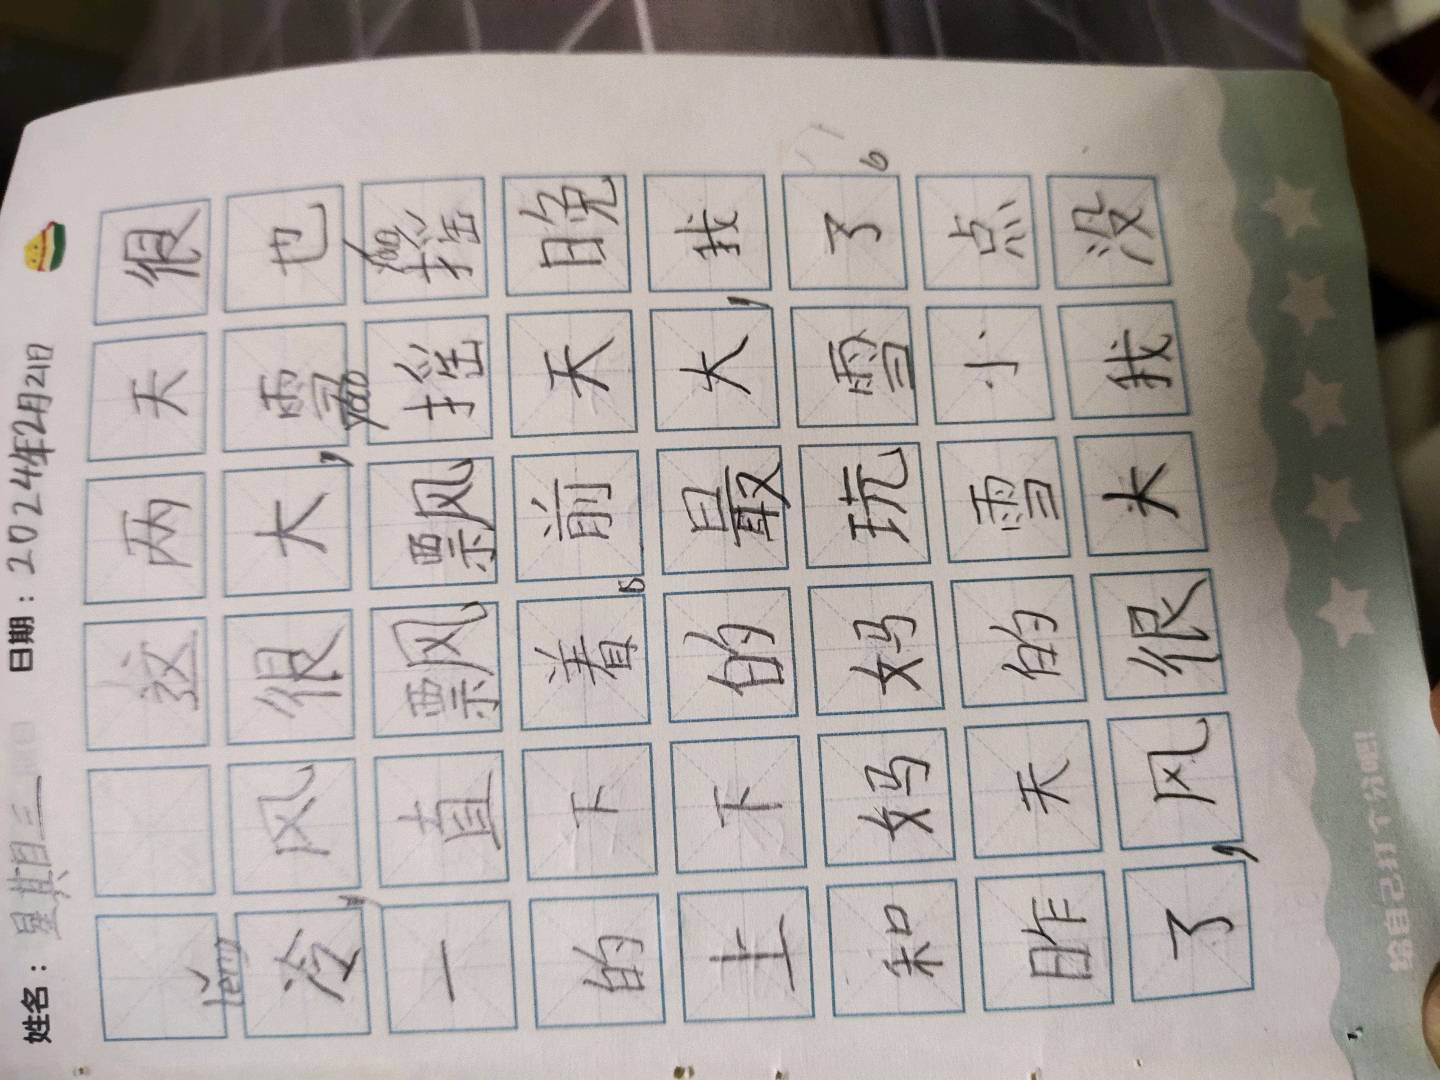 姓名：星期三 日期：2024年2月21日
这两天很
lěng
冷，风很大，雪也
yáo yáo
一直飘飘摇摇
的下着。前天晚
上下的最大，我
和妈妈玩雪了。
昨天的雪小点
了，风很大我没
给自己打个分